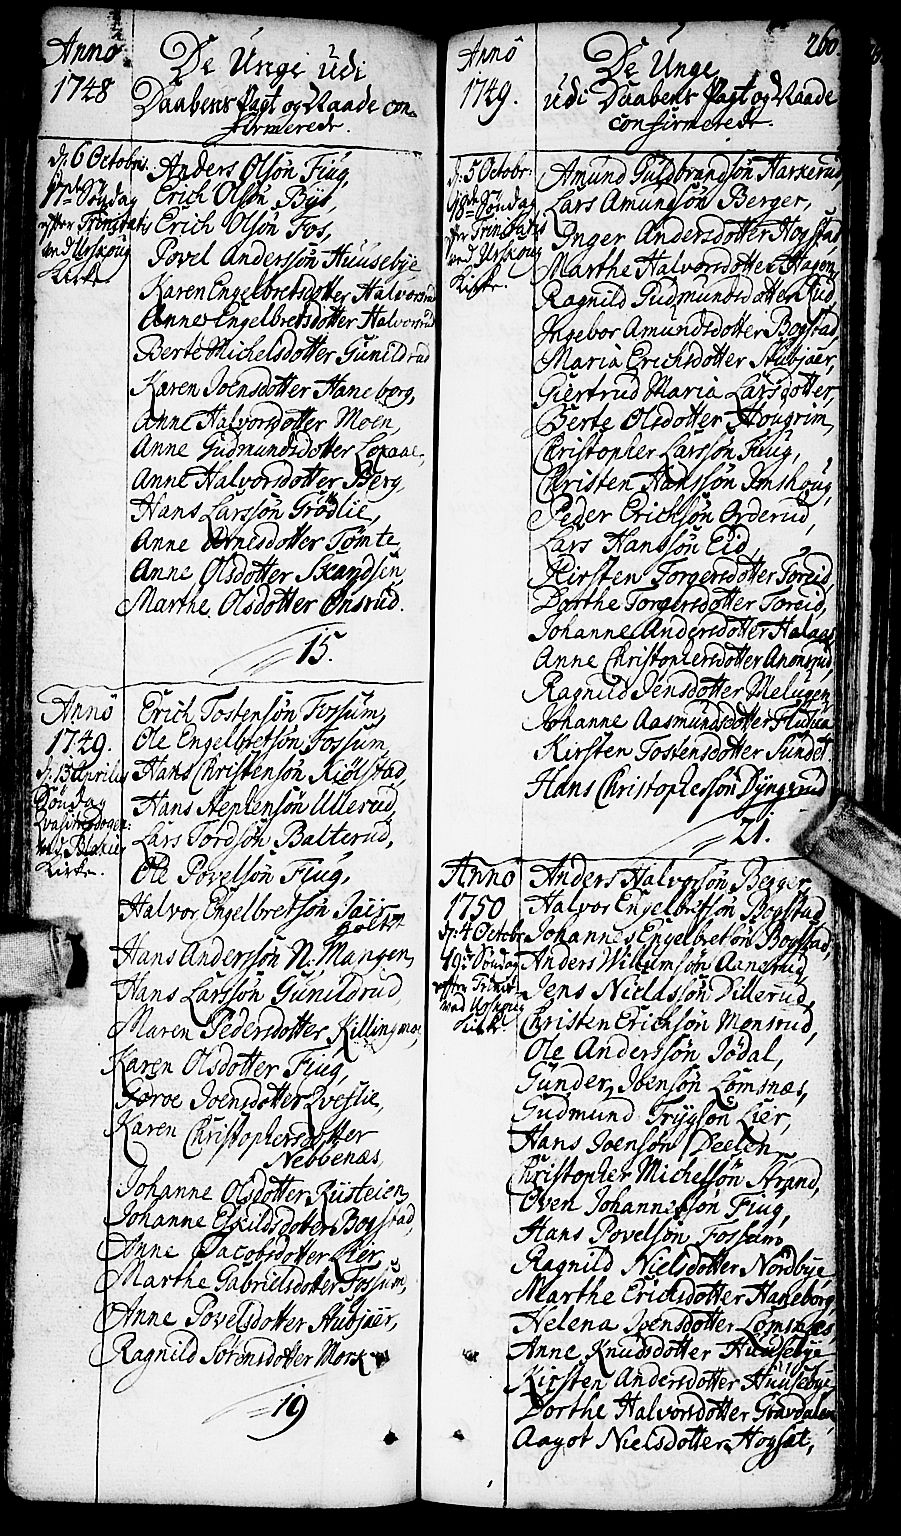 Anno
1748
De Unge udi
Daabens Pagt og Naade con-
firmerede.
d. 6 Octobr.
17de Søndag
efter Trinitatis
ved Urskoug
Kirke.
Anders Olsøn Fiug,
Erich Olsøn Bÿe,
Erich Olsøn Fos,
Povel Andersøn Huusebÿe
Karen Engelbretsdotter Halvorsrud
Anne Engelbretsdotter Halvorsrud
Berte Michelsdotter Gunildrud
Karen Joensdotter Haneborg,
Anne Halvorsdotter Moen,
Anne Gudmundsdotter
Anne Halvorsdotter Berg,
Hans Larssøn Grødlie,
Anne Arnesdotter Tomte
Anne Olsdotter Skandsen,
Marthe Olsdotter Onsrud.
15.
Anno
1749.
d. 13 Aprilis
Søndag
ved Blakier
Kirke.
Erich Tostensøn Fossum,
Ole Engelbretsøn Fossum
Hans Christensøn Kiølstad,
Hans Stephensøn Ullerud,
Lars Tordsøn Balterud,
Ole Povelsøn Fiug,
Halvor Engelbretsøn
Hans Anderssøn N: Mangen,
Hans Larssøn Gunildrud,
Maren Pedersdotter Killingmoe,
Karen Olsdotter Fiug,
Goroe Joensdotter Qveslie,
Karen Christophersdotter
Nebbenæs,
Johanne Olsdotter Rusteien,
Johanne Eskildsdotter Bogstad,
Anne Jacobsdotter Lier,
Marthe Gabrielsdotter Fossum,
Anne Povelsdotter Stubjær,
Ragnild Sørensdotter Mork
19
260.
Anno
1749.
De Unge
udi Daabens Pagt og Naade
confirmerede.
d. 5 Octobr:
18de Søndag
efter Trinitatis
ved Urskoug
Kirke.
Amund Guldbrandsøn Harkerud,
Lars Amunsøn Berger,
Inger Andersdotter Hogstad
Marthe Halvorsdotter Hagen,
Ragnild Gudmundsdotter Rud,
Ingebor Amundsdotter Bogstad,
Maria Erichsdotter Stubjær,
Giertrud Maria Larsdotter,
Berte Olsdotter Hougrim,
Christopher Larssøn Fiug,
Christen Hanssøn Imshoug,
Peder Erichsøn Orderud,
Lars Hanssøn Eid,
Kirsten Torgersdotter Toreid,
Dorthe Torgersdotter Toreid,
Johanne Andersdotter Halaas,
Anne Christophersdotter Anonsrud,
Ragnild Jensdotter Melugen,
Johanne Aasmundsdotter
Kirsten Tostensdotter Sundet.
Hans Christophersøn Dÿngerud
21.
Anno
1750
d. 4 Octobr.
19de Søndag
efter Trinit:
ved Urskoug
Kirke
Anders Halvorsøn Berger,
Halvor Engelbretsøn Bogstad,
Johannes Engelbretsøn Bogstad,
Anders Willumsøn Aanerud,
Jens Nielssøn Dillerud,
Christen Erichsøn Monsrud,
Ole Anderssøn Jødal,
Gunder Joensøn Lomsnæs,
Gudmund Trÿgsøn Lier,
Hans Joensøn Deelen,
Christopher Michelsøn Strand,
Even Johannessøn Fiug,
Hans Povelsøn Fossum,
Ragnild Nielsdotter Nordbÿe,
Marthe Erichsdotter Haneborg,
Helena Joensdotter Lomsnæs
Anne Knudsdotter Huusebÿe
Kirsten Andersdotter Huusebÿe,
Dorthe Halvorsdotter Gravdalen,
Aagot Nielsdotter Hogset,